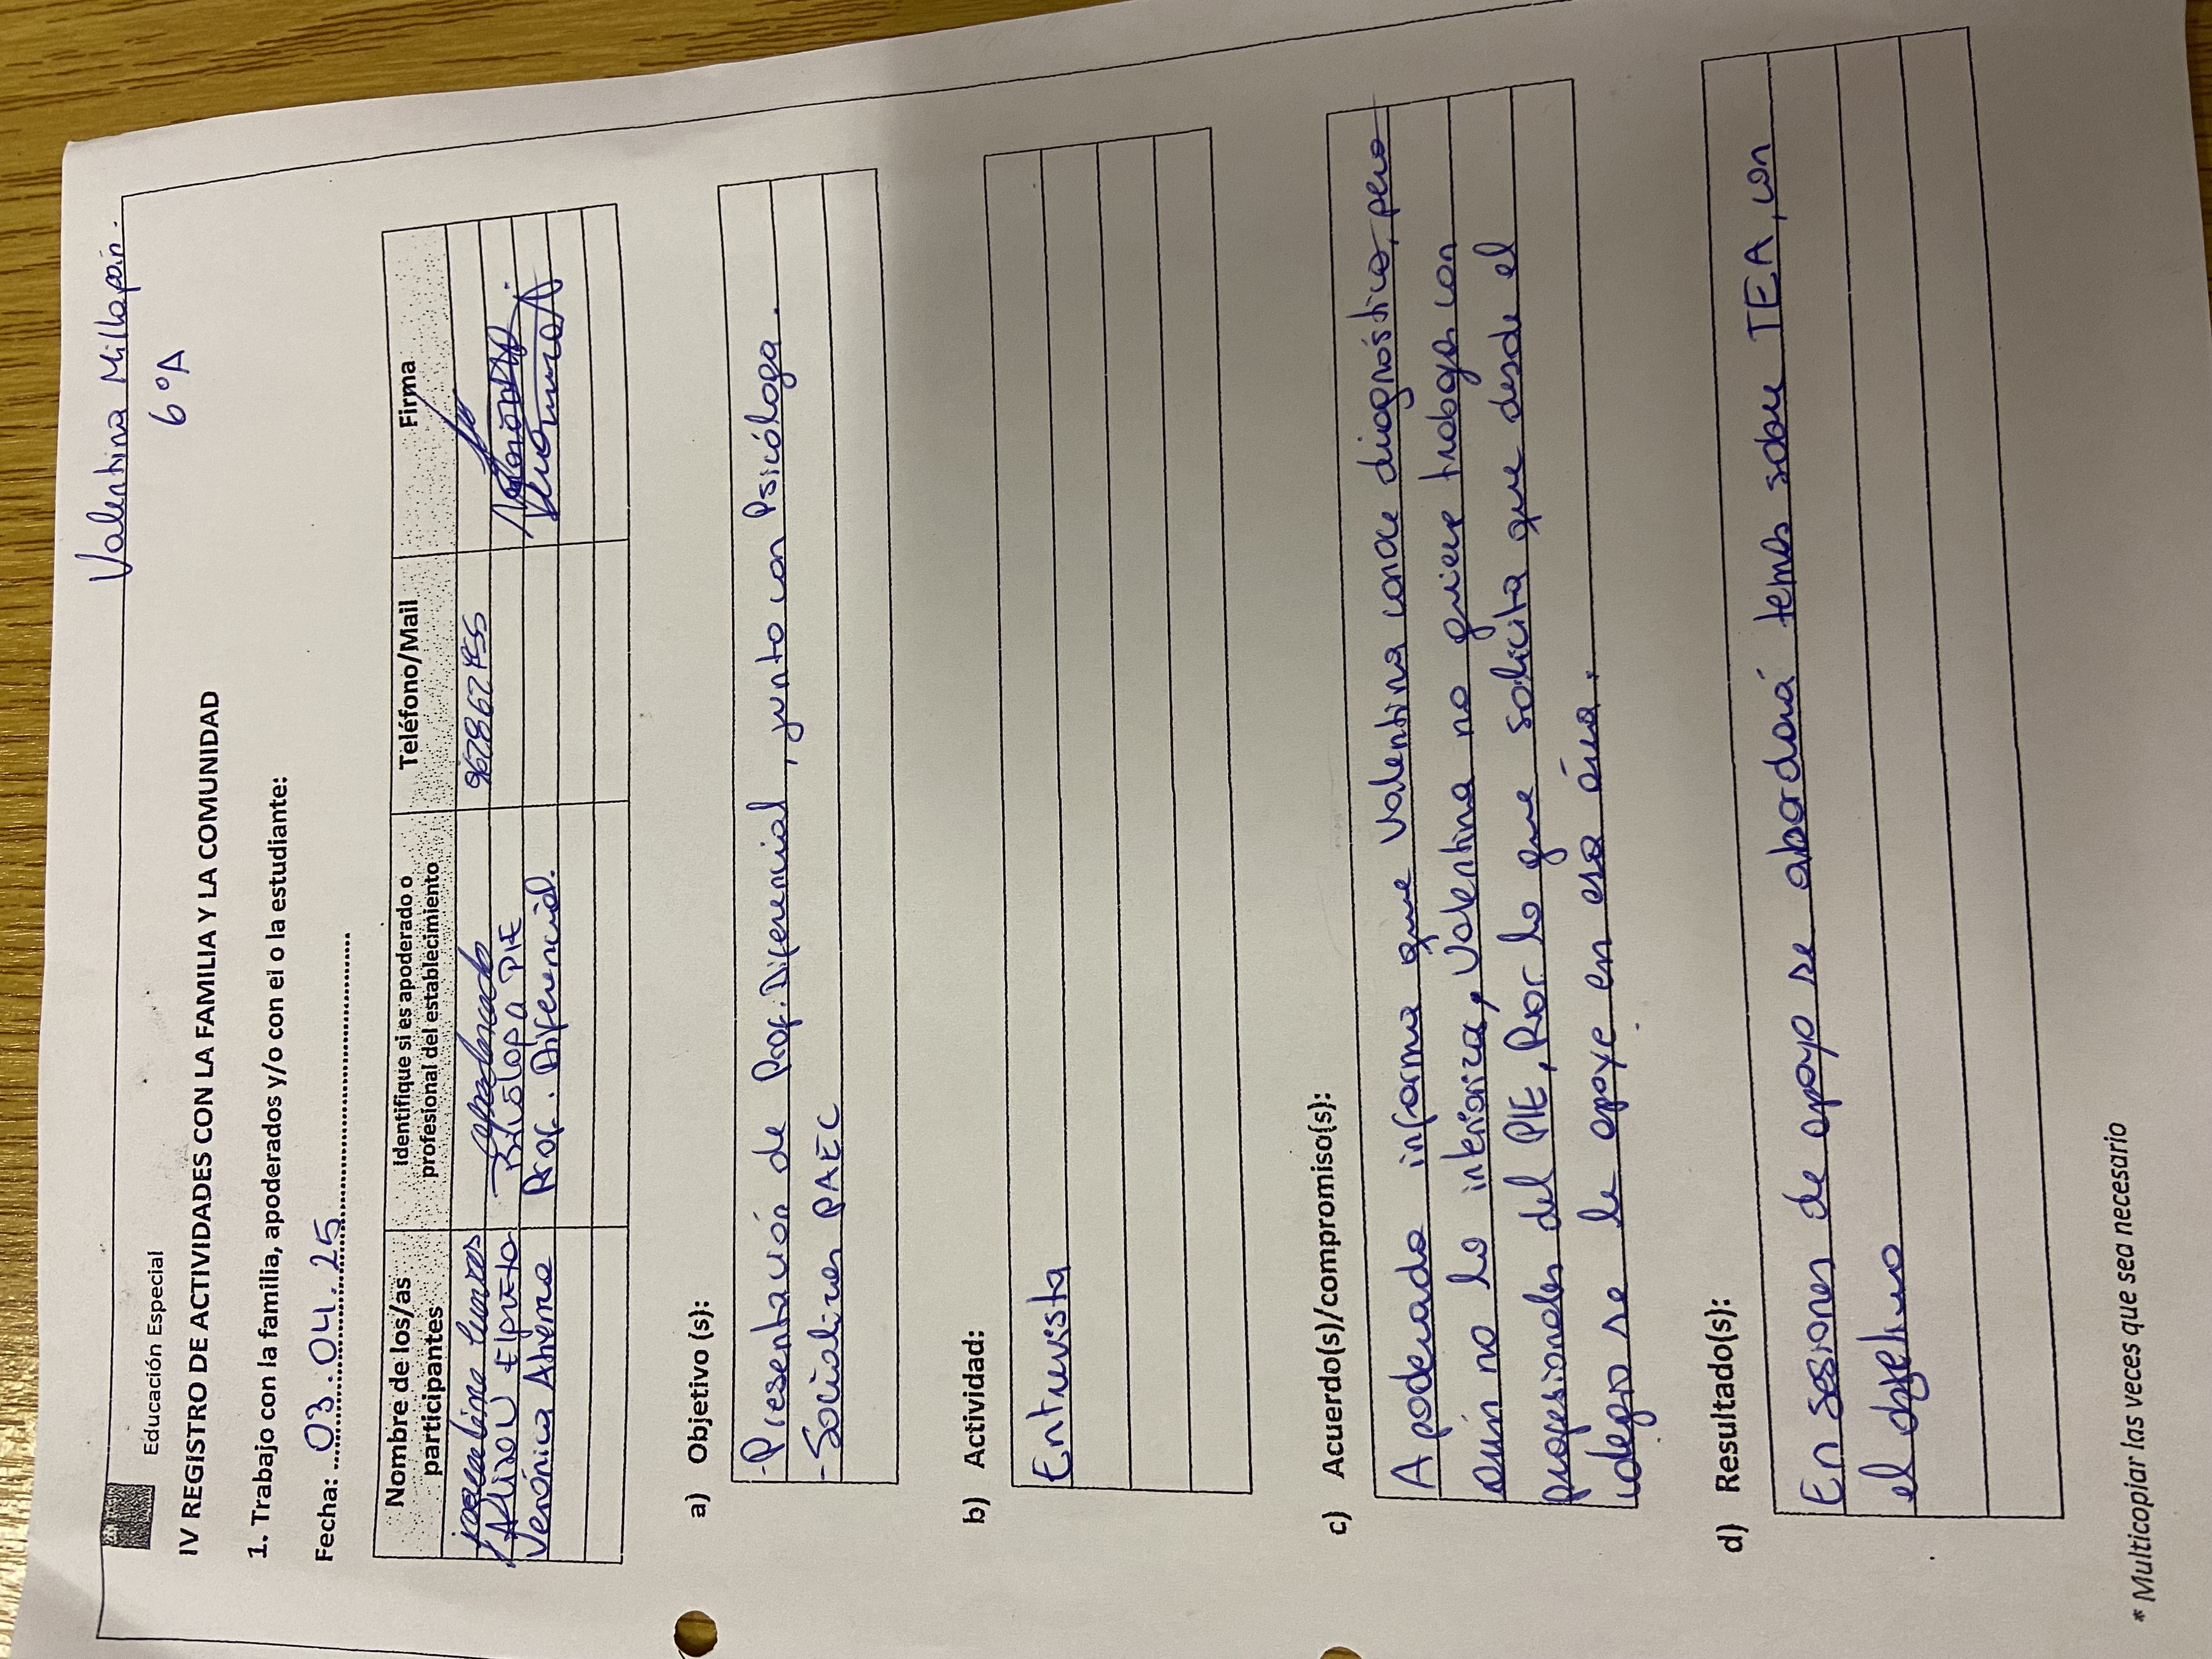 Valentina Millapán.
6°A
Educación Especial
IV REGISTRO DE ACTIVIDADES CON LA FAMILIA Y LA COMUNIDAD
1. Trabajo con la familia, apoderados y/o con el o la estudiante:
Fecha: 03.04.25
Nombre de los/as participantes | Identifique si es apoderado o profesional del establecimiento | Teléfono/Mail | Firma
apoderado
Psicóloga PIE
Verónica | Prof. Diferencial.
a) Objetivo (s):
- Presentación de Prof. Diferencial, junto con Psicóloga.
- Socializar PAEC
b) Actividad:
Entrevista
c) Acuerdo(s)/compromiso(s):
Apoderado informa que Valentina conoce diagnóstico, pero
aún no lo interioriza, Valentina no quiere trabajar con
profesionales del PIE, Por lo que solicita que desde el
colegio se le apoye en esa área.
d) Resultado(s):
En sesiones de apoyo se abordará temas sobre TEA, con
el
* Multicopiar las veces que sea necesario